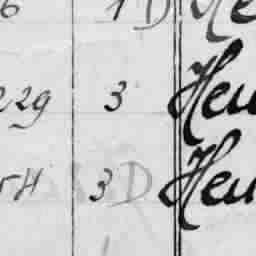 6 1 D He
229 3 Heu
54 3 D Heu